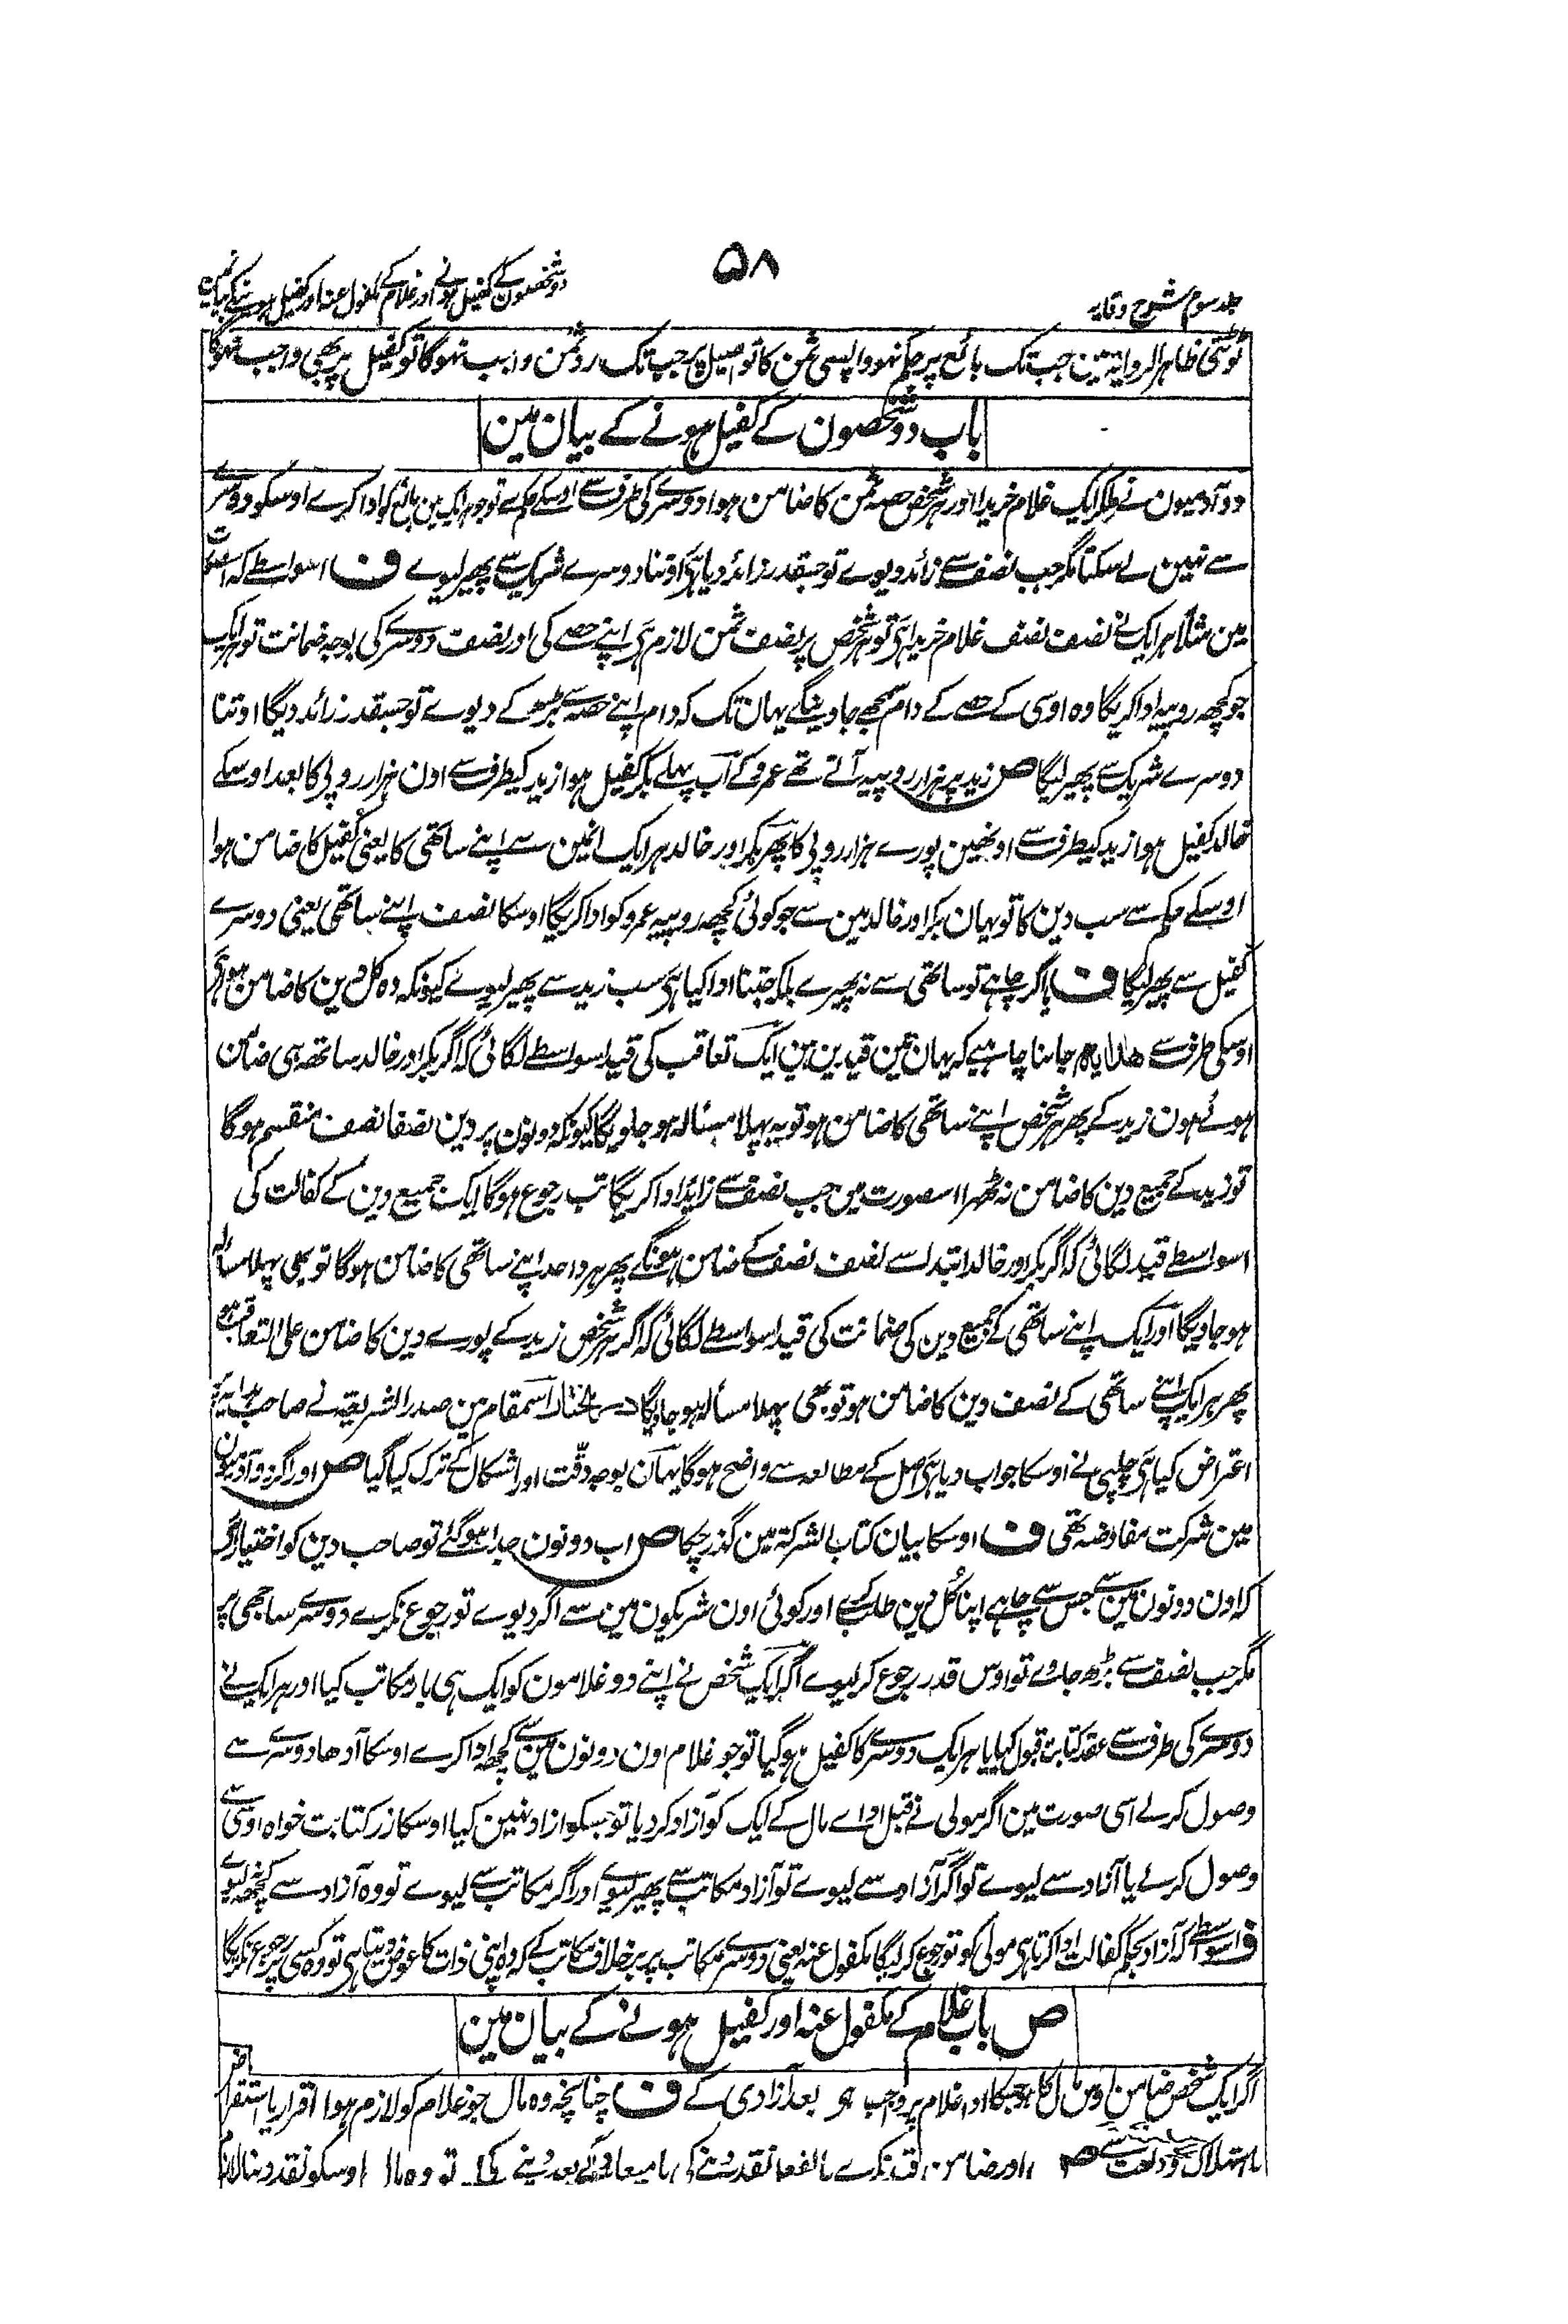 ۵۸
جلد سوم شرح وقایہ
دو شخصون کے کفیل ہونے اور غلام کے مکفول عنہ اور کفیل ہونیکے بیان مین
ٹوٹتی ظاہر الروایۃ مین جب تک بائع پر حکم نہو واپسی ثمن کا تو اصیل پر جب تک رد ثمن واجب نہوگا تو کفیل پر بھی واجب نہوگا
باب دو شخصون کے کفیل ہونے کے بیان مین
دو آدمیون نے ملکر ایک غلام خریدا اور ہر شخص حصہ ثمن کا ضامن ہوا دوسرے کی طرف سے اوسکے حکم سے تو جو ہر ایک ان مین بائع کو ادا کرے اوسکو دوسرے
سے نہین لے سکتا مگر جب نصف سے زائد دیوے تو جسقدر زائد دیا ہی اوتنا دوسرے شریک سے پھیر لیوے ف اسواسطے کہ اس صورت
مین مثلاً ہر ایک نے نصف نصف غلام خریدا ہی تو ہر شخص پر نصف ثمن لازم ہی اپنے حصے کی اور نصف دوسرے کی بوجہ ضمانت تو ہر ایک
جو کچھہ روپیہ ادا کریگا وہ اوسی کے حصے کے دام سمجھے جاوینگے یہان تک کہ دام اپنے حصہ سے بڑھ کے دیوے تو جسقدر زائد دیگا اوتنا
دوسرے شریک سے پھیر لیگا ص زید پر ہزار روپیہ آتے تھے عمرو کے آب پہلے بکر کفیل ہوا زید کیطرف سے اون ہزار روپی کا بعد اوسکے
خالد کفیل ہوا زید کیطرف سے اونھین پورے ہزار روپی کا پھر بکر اور خالد ہر ایک انمین سے اپنے ساتھی کا یعنی کفیل کا ضامن ہوا
اوسکے حکم سے سب دین کا تو یہان بکر اور خالد مین سے جو کوئی کچھہ روپیہ عمرو کو ادا کریگا اوسکا نصف اپنے ساتھی یعنی دوسرے
کفیل سے پھیر لیگا ف یا اگر چاہے تو ساتھی سے نہ پھیرے بلکہ جتنا ادا کیا ہی سب زید سے پھیر لیوے کیونکہ وہ کل دین کا ضامن ہوا ہی
اوسکی طرف سے ھدایہ جاننا چاہیے کہ یہان تین قیدین ہین ایک تعاقب کی قید اسواسطے لگائی کہ اگر بکر اور خالد ساتھہ ہی ضامن
ہوئے ہون زید کے پھر ہر شخص اپنے ساتھی کا ضامن ہو تو یہ پہلا مسئالہ ہو جاویگا کیونکہ دونون پر دین نصفا نصف منقسم ہوگا
تو زید کے جمیع دین کا ضامن نہ ٹھہرا اسصورت مین جب نصف سے زائد ادا کریگا تب رجوع ہوگا ایک جمیع دین کے کفالت کی
اسواسطے قید لگائی کہ اگر بکر اور خالد ابتدا سے نصف نصف کے ضامن ہونگے پھر ہر واحد اپنے ساتھی کا ضامن ہوگا تو بھی پہلا مسألہ
ہو جاویگا اور ایک اپنے ساتھی کے جمیع دین کی ضمانت کی قید اسواسطے لگائی کہ اگر ہر شخص زید کے پورے دین کا ضامن علی التعاقب ہو
پھر ہر ایک اپنے ساتھی کے نصف دین کا ضامن ہو تو بھی پہلا مسألہ ہو جاویگا درالمختار اسمقام مین صدر الشریعۃ نے صاحب ہدایہ پر
اعتراض کیا ہی چلپی نے اوسکا جواب دیا ہی اصل کے مطالعہ سے واضح ہوگا یہان بوجہ دقّت اور اشکال کے ترک کیا گیا ص اور اگر دو آدمیون
مین شرکت مفاوضہ تھی ف اوسکا بیان کتاب الشرکۃ مین گذر چکا ص اب دونون جدا ہوگئے تو صاحب دین کو اختیار ہی
کہ اون دونون مین سے جس سے چاہے اپنا کُل دین طلب کرے اور کوئی اون شریکون مین سے اگر دیوے تو رجوع نکرے دوسرے ساجھی پر
مگر جب نصف سے بڑھ جاوے تو اوس قدر رجوع کر لیوے اگر ایک شخص نے اپنے دو غلامون کو ایک ہی بار مکاتب کیا اور ہر ایک نے
دوسرے کی طرف سے عقد کتابت قبول کیا یا ہر ایک دوسرے کا کفیل ہو گیا تو جو غلام اون دونون مین سے کچھہ ادا کرے اوسکا آدھا دوسرے سے
وصول کر لے اسی صورت مین اگر مولی نے قبل ادا ے مال کے ایک کو آزاد کر دیا تو جسکو ازاد نہین کیا اوسکا زر کتابت خواہ اوسی سے
وصول کر لے یا آزاد سے لیوے تو اگر آزاد سے لیوے تو آزاد مکاتب سے پھیر لیوے اور اگر مکاتب سے لیوے تو وہ آزاد سے کچھہ نہ لیوے
ف اسواسطے کہ آزاد بحکم کفالت ادا کرتا ہی مولی کو تو رجوع کر لیگا مکفول عنہ یعنی دوسرے مکاتب پر بر خلاف مکاتب کے کہ وہ اپنی ذات کا عوض دیتا ہی تو وہ کسی پر رجوع نکریگا
ص باب غلام کے مکفول عنہ اور کفیل ہونے کے بیان مین
اگر ایک شخص ضامن ہو اوس مال کا جو غلام پر واجب ہو بعد آزادی کے ف چنانچہ وہ مال جو غلام کو لازم ہوا اقرار یا استقراض
یا استہلاک ودیعت سے ص اور ضامن قید نکرے بالفعل نقد دینے کی یا میعاد کے بعد دینے کی تو وہ مال اوسکو نقد دینا لازم